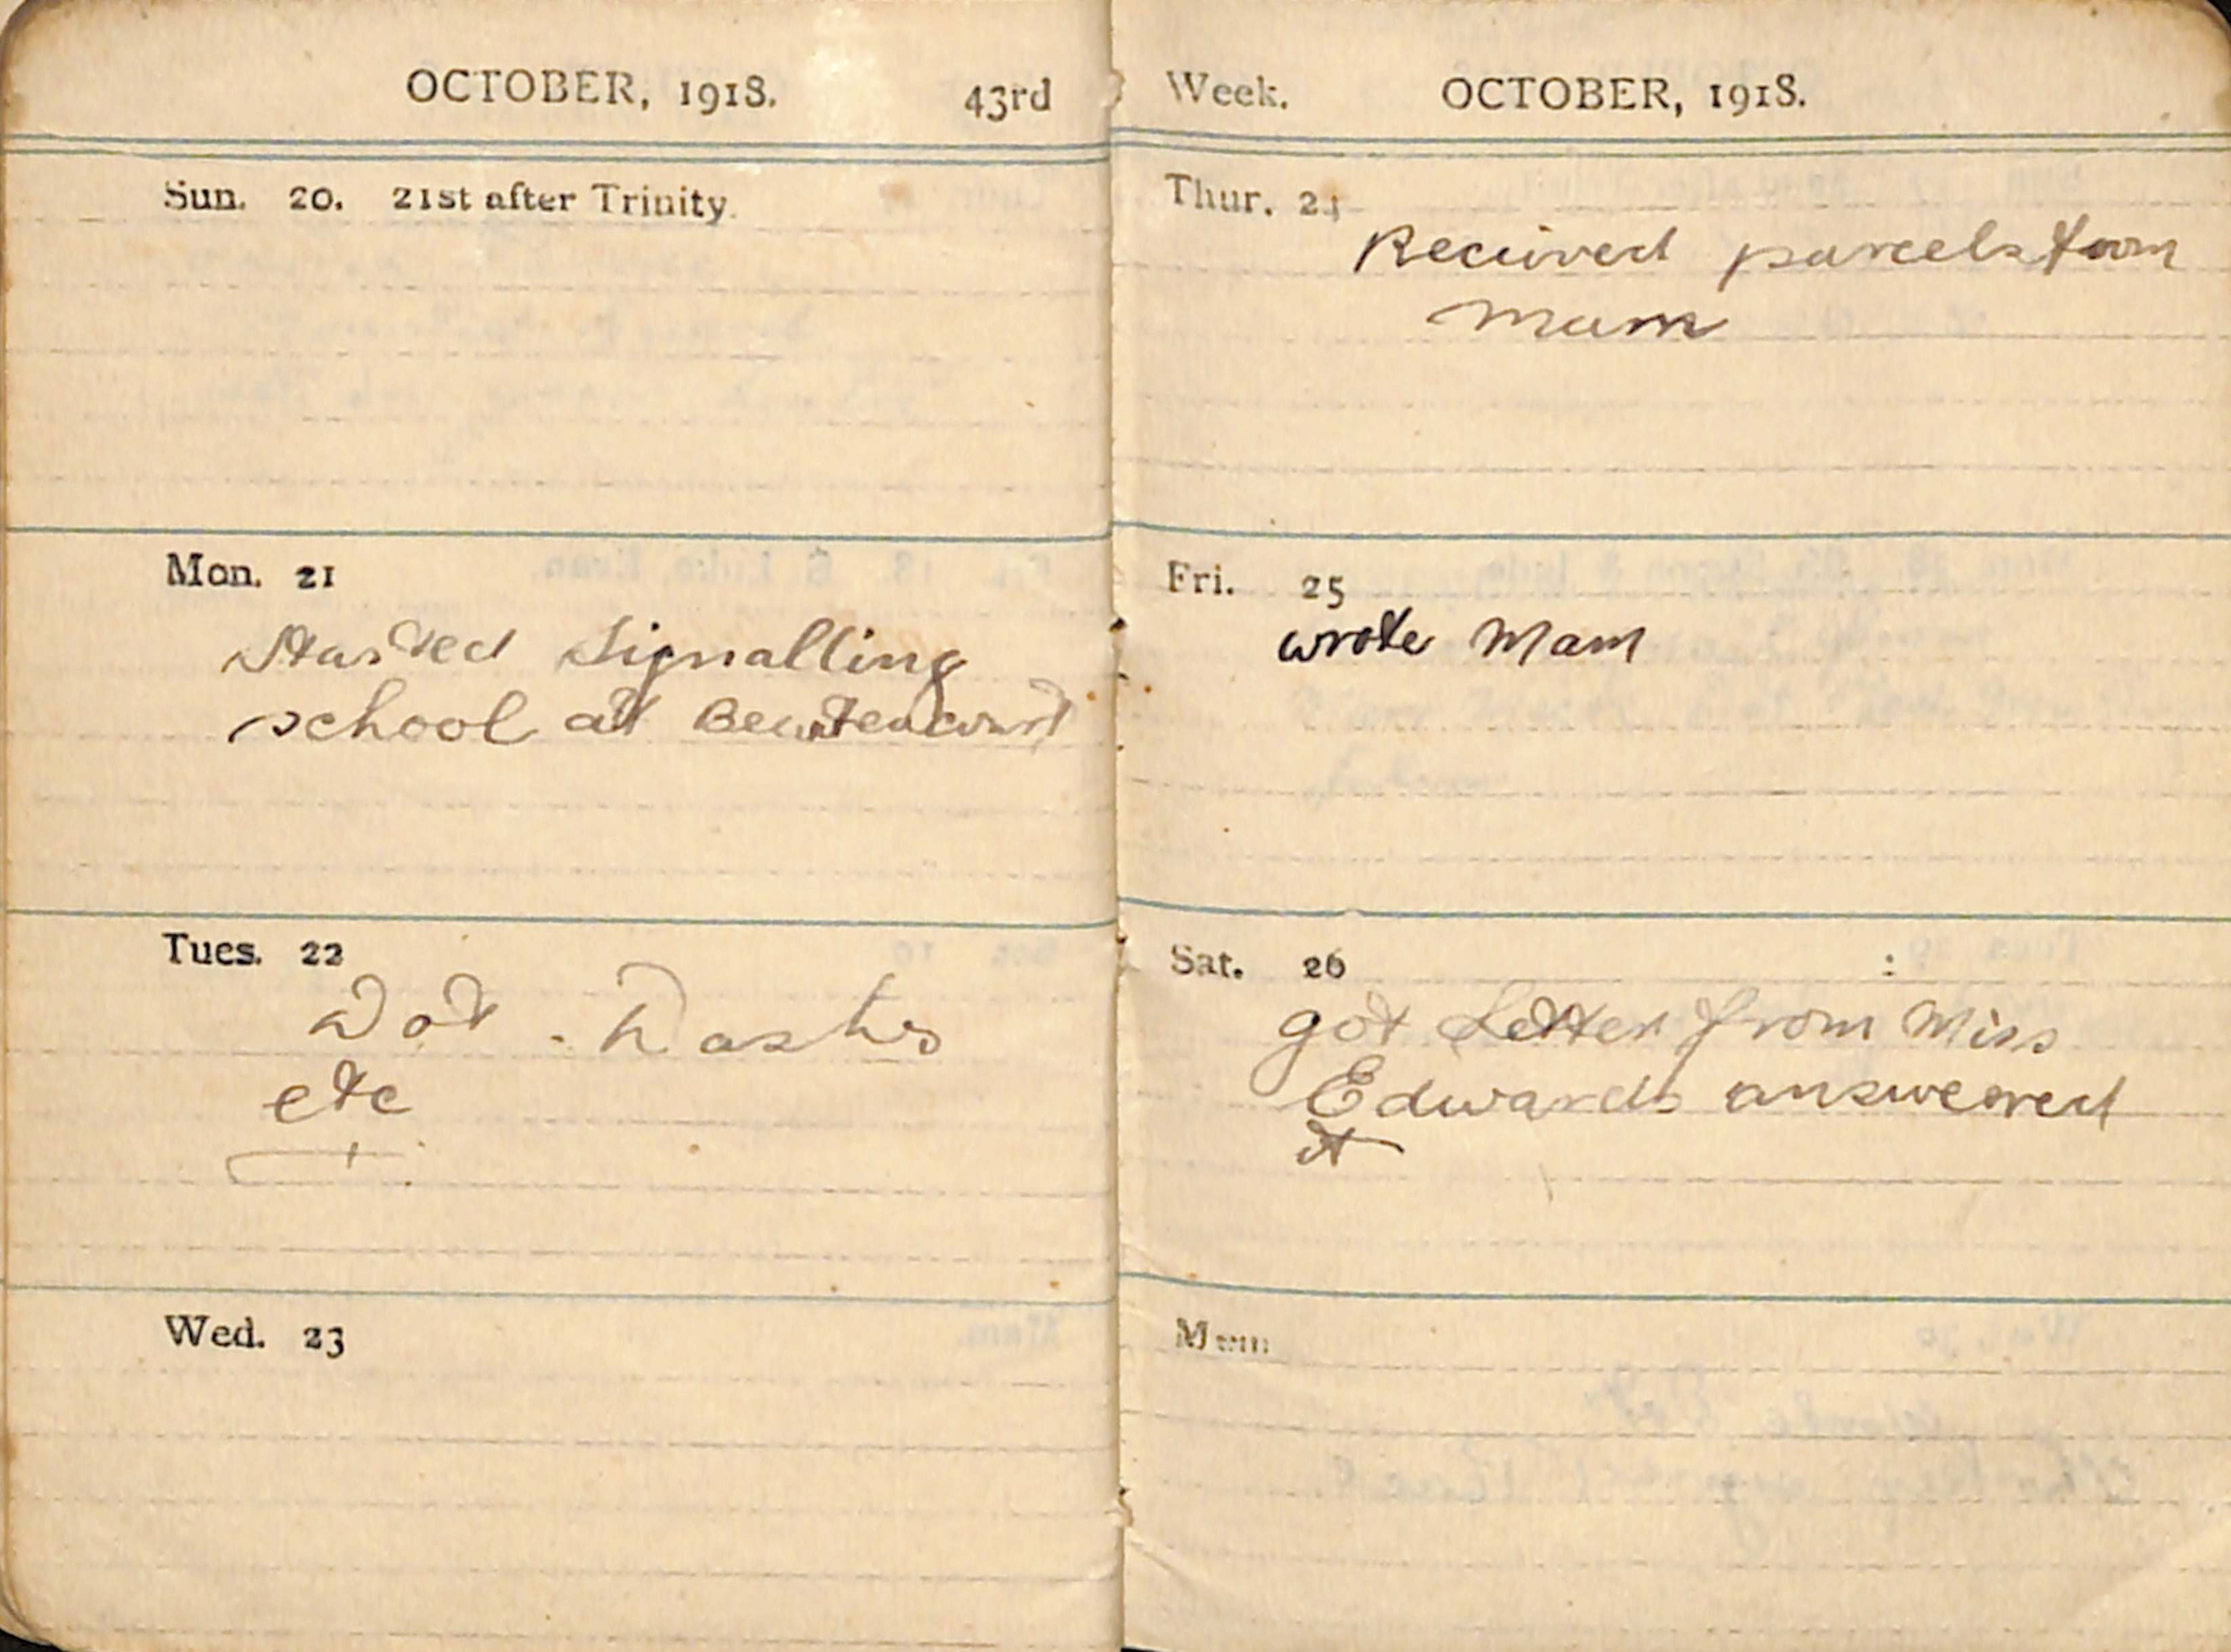 OCTOBER, 1918. 43rd
Sun. 20. 21st after Trinity.
Mon. 21
Started Signalling
school at
Tues. 22
Dot. Dashes
etc
Wed. 23
Week. OCTOBER, 1918.
Thur. 24
Received parcels from
Mam
Fri. 25
wrote Mam
Sat. 26
got Letter from Miss
Edwards answered
it
Mem